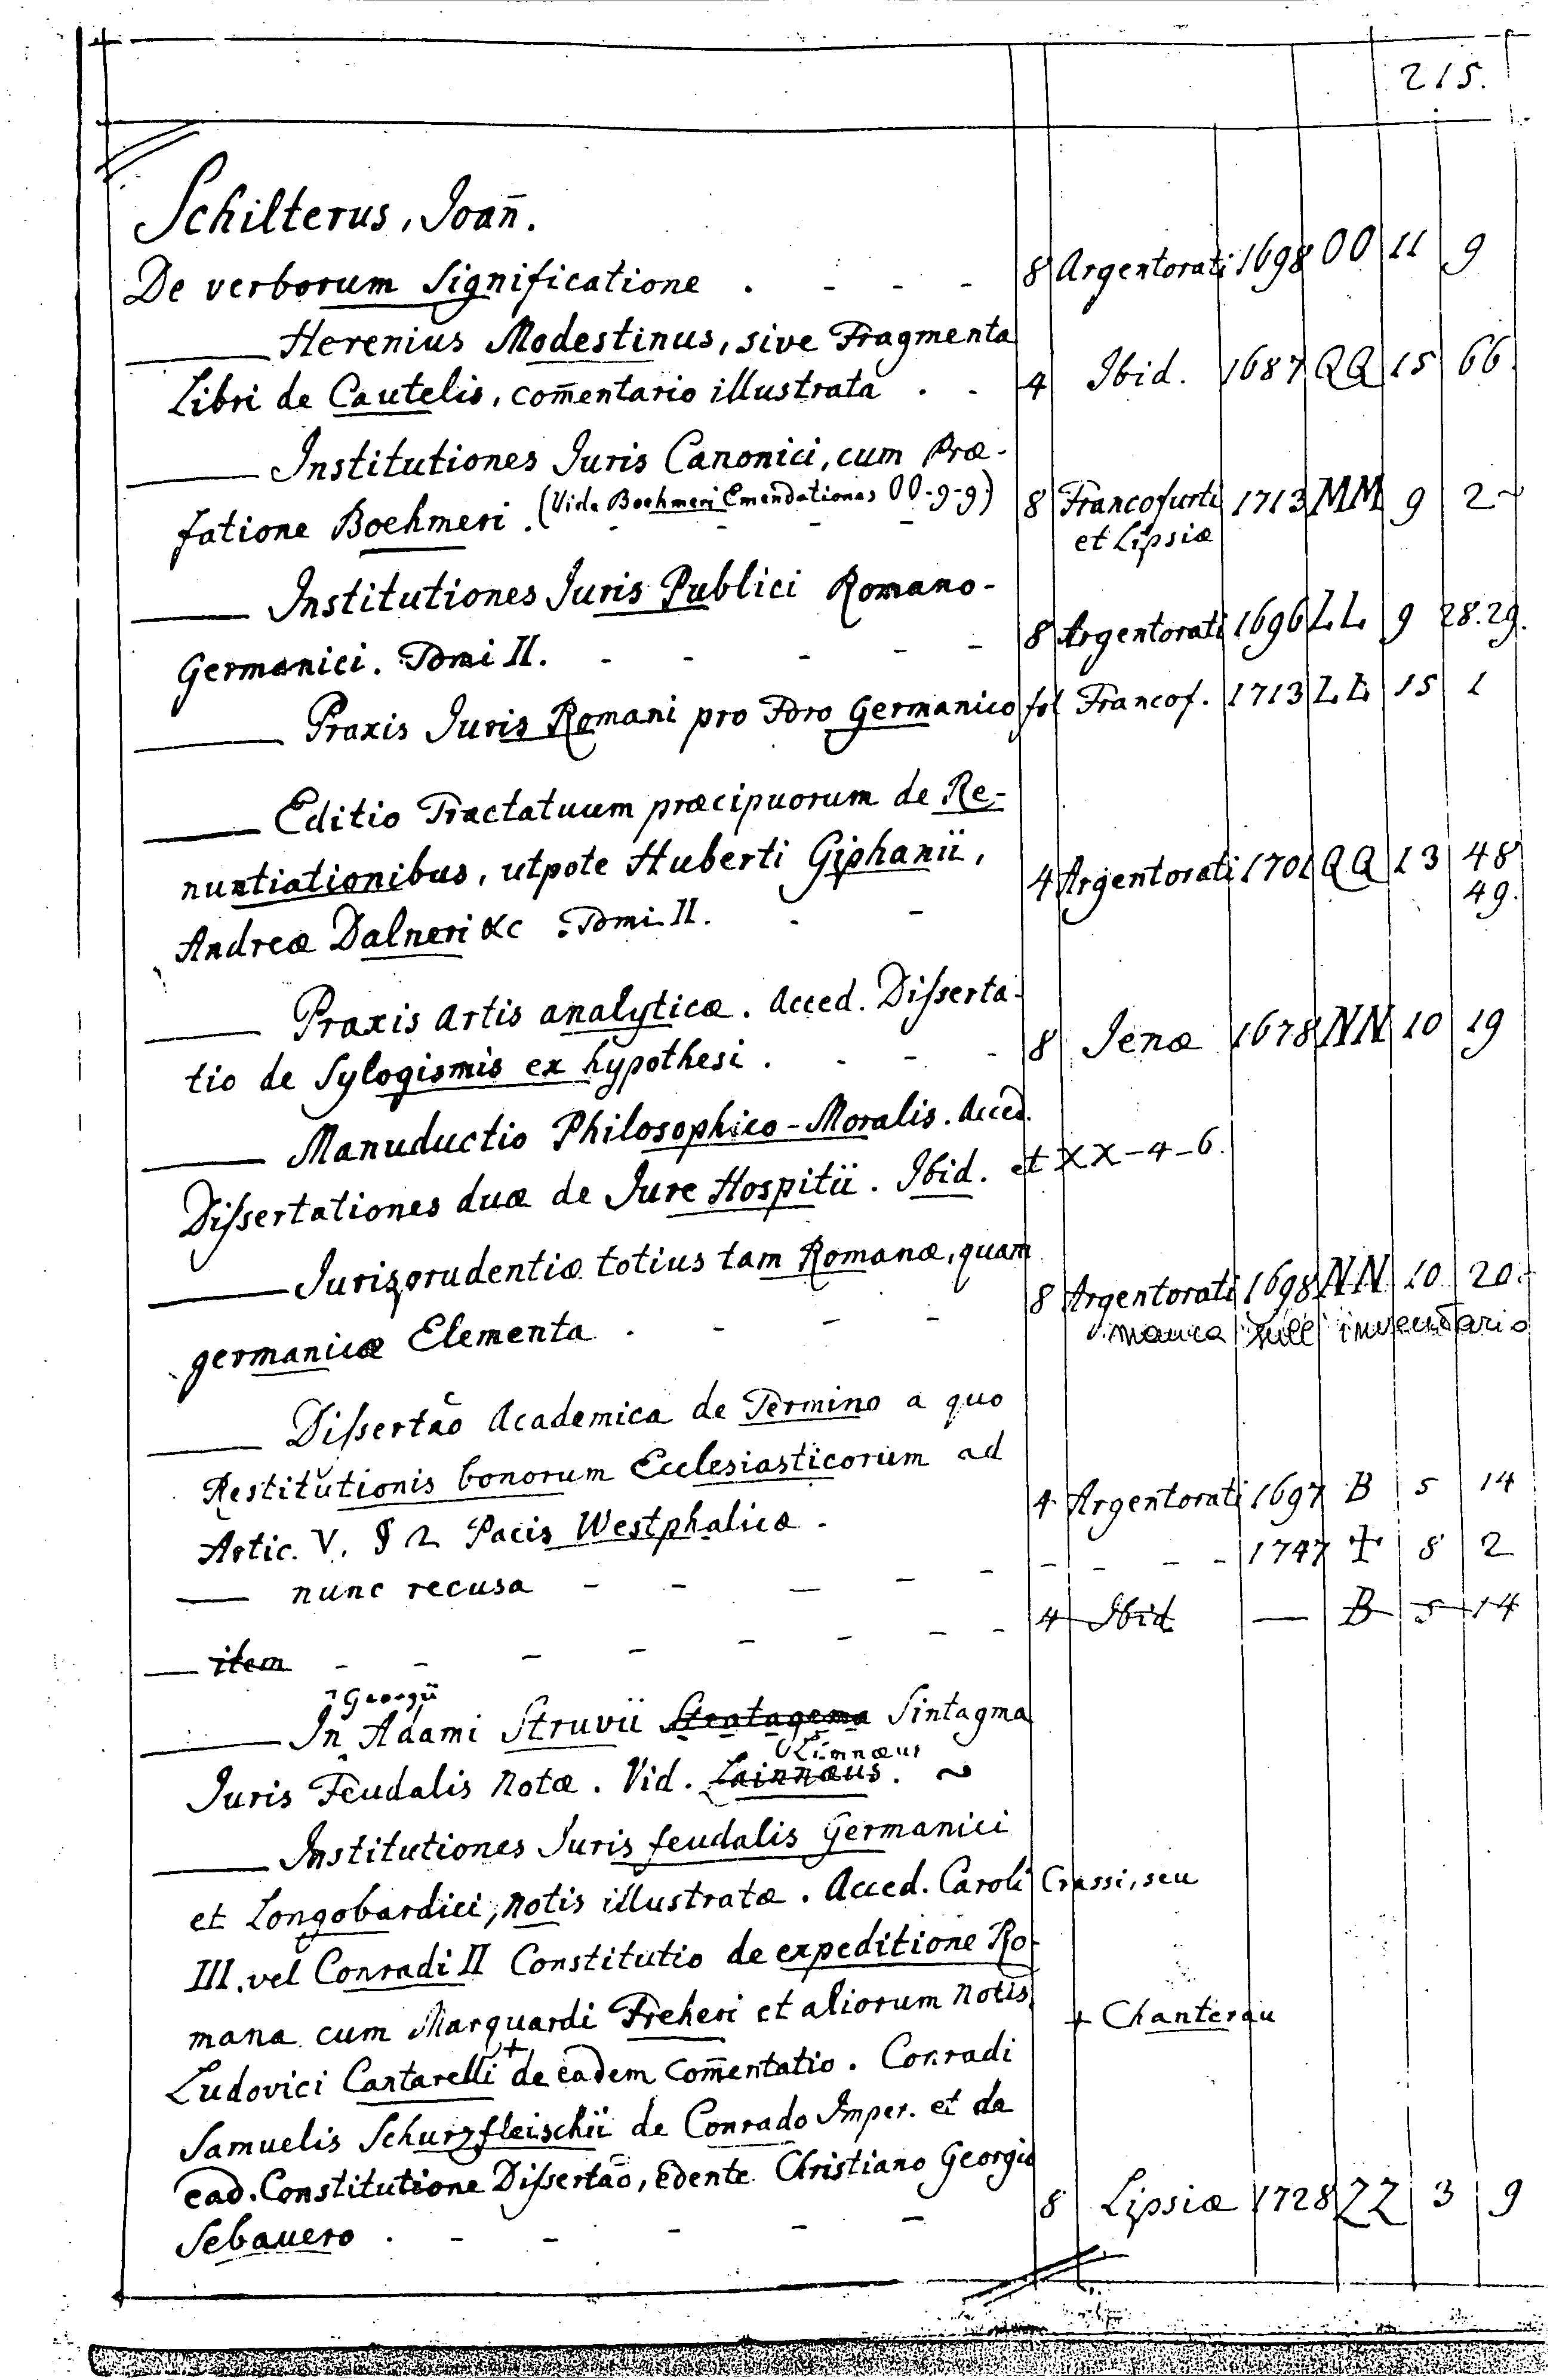 215.
Schilterus, Joan̄.
De verborum Significatione . - - - 8 Argentorati 1698 OO 11 9
—— Herenius Modestinus, sive Fragmenta
Libri de Cautelis, com̄entario illustrata . . 4 Ibid. 1687 QQ 15 66.
—— Institutiones Juris Canonici, cum Præ-
fatione Boehmeri. (Vide Boehmeri Emendationes OO-9-9) 8 Francofurti 1713 MM 9 2~
et Lipsiæ
—— Institutiones Juris Publici Romano-
Germanici. Tomi II. - - - - - 8 Argentorati 1696 LL 9 28.29.
—— Praxis Juris Romani pro Foro Germanico fol Francof. 1713 LL 15 1
—— Editio Tractatuum præcipuorum de Re-
nuntiationibus, utpote Huberti Giphanii, 4 Argentorati 1701 QQ 13 48
49.
Andreæ Dalneri &c Tomi II. - -
—— Praxis Artis analyticæ. Acced. Disserta-
tio de Sylogismis ex hypothesi . - - - 8 Jenæ 1678 NN 10 19
—— Manuductio Philosophico-Moralis. Acced.
Dissertationes duæ de Jure Hospitii. Ibid. et XX-4-6.
—— Jurisprudentiæ totius tam Romanæ, quam
8 Argentorati 1698 NN 10 20.
manca sull' inventario
germanicæ Elementa . - - -
—— Dissertāo Academica de Termino a quo
Restitutionis bonorum Ecclesiasticorum ad
Artic. V. § 2 Pacis Westphalicæ . 4. Argentorati 1697 B 5 14
—— nunc recusa - - - - - - - - - 1747 ✝ 8 2
—— item - - - - - - - - 4 Ibid — B 5 14
Georgii
—— In Adami Struvii Stratagema Sintagma
Limnæus
Juris Feudalis Notæ. Vid. Lainnæus. ~
—— Institutiones Juris feudalis Germanici
et Longobardici, notis illustratæ. Acced. Caroli Crassi, seu
III. vel Conradi II Constitutio de expeditione Ro-
mana cum Marquardi Freheri et aliorum notis.
+ Chanterau
Ludovici Cantarelli + de eadem com̄entatio. Conradi
Samuelis Schurzfleischii de Conrado Imper. et de
ead. Constitutione Dissertāo, edente Christiano Georgio
Sebauero . - - - - - 8 Lipsiæ 1728 ZZ 3 9